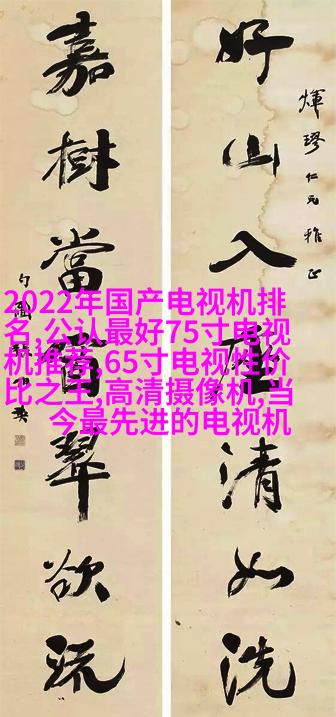 煇璆仁兄雅正
好山入座清如洗
嘉樹當窗翠欲流
2022年国产电视机排
名,公认最好75寸电视
机推荐,65寸电视性价
比之王,高清摄像机,当
今最先进的电视机